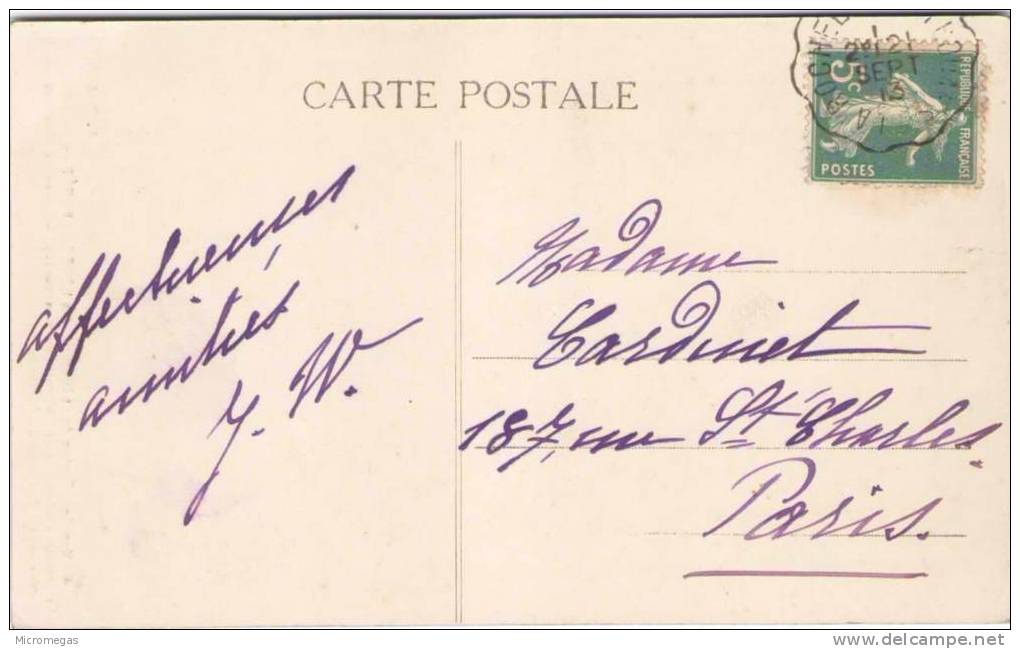 CARTE POSTALE
5c
REPUBLIQUE FRANÇAISE
POSTES
21
SEPT
13
affectueuses
amitiés
J. W.
Madame
Cardinet
187, rue St Charles.
Paris.
Micromegas
delcampe.net